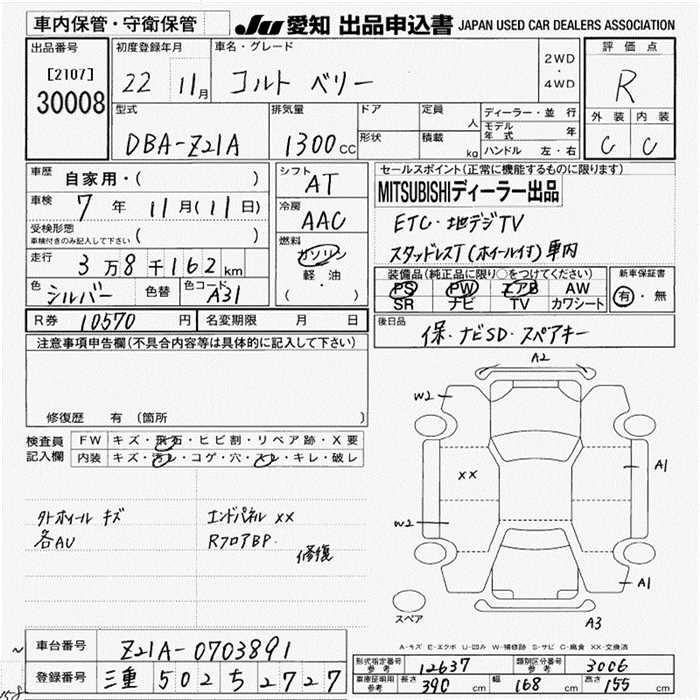 車内保管・守衛保管
JU 愛知 出品申込書 JAPAN USED CAR DEALERS ASSOCIATION
出品番号
[2107]
30008
初度登録年月
22 11月
車名・グレード
コルト ベリー
2WD
・
4WD
評価点
R
外装 内装
C C
型式
DBA-Z21A
排気量
1300cc
ドア
形状
定員
人
積載
kg
ディーラー・並行
モデル年式 年
ハンドル 左・右
車歴
自家用・( )
車検
7年 11月(11日)
受検形態
車検付きのみ記入して下さい ( )
走行
3万8千162km
色
シルバー
色替
色コード
A31
シフト
AT
冷房
AAC
燃料
ガソリン
軽・油
( ・ )
セールスポイント(正常に機能するものに限ります)
MITSUBISHIディーラー出品
ETC・地デジTV
スタッドレスT(ホイール付)車内
装備品(純正品に限り○をつけてください)
PS PW エアB AW
SR ナビ TV カワシート
新車保証書
有・無
R券 10570円
名変期限 月 日
後日品
保・ナビSD・スペアキー
注意事項申告欄(不具合内容等は具体的に記入して下さい)
修復歴 有 (箇所 )
検査員
記入欄
FW キズ・飛石・ヒビ割・リペア跡・X要
内装 キズ・汚レ・コゲ・穴・スレ・キレ・破レ
タトホイール キズ
各AU
エンドパネル XX
RフロアBP.
修復
A2
W2
XX
A1
W2
A1
スペア
A3
A-キズ E-エクボ U-凹み W-補修跡 S-サビ C-腐食 XX-交換済
車台番号
Z21A-0703891
登録番号
三重 502 ち 2727
形式指定番号 参考
12637
類別区分番号 参考
3006
車庫証明用 参考
長さ 390cm
幅 168cm
高さ 155cm